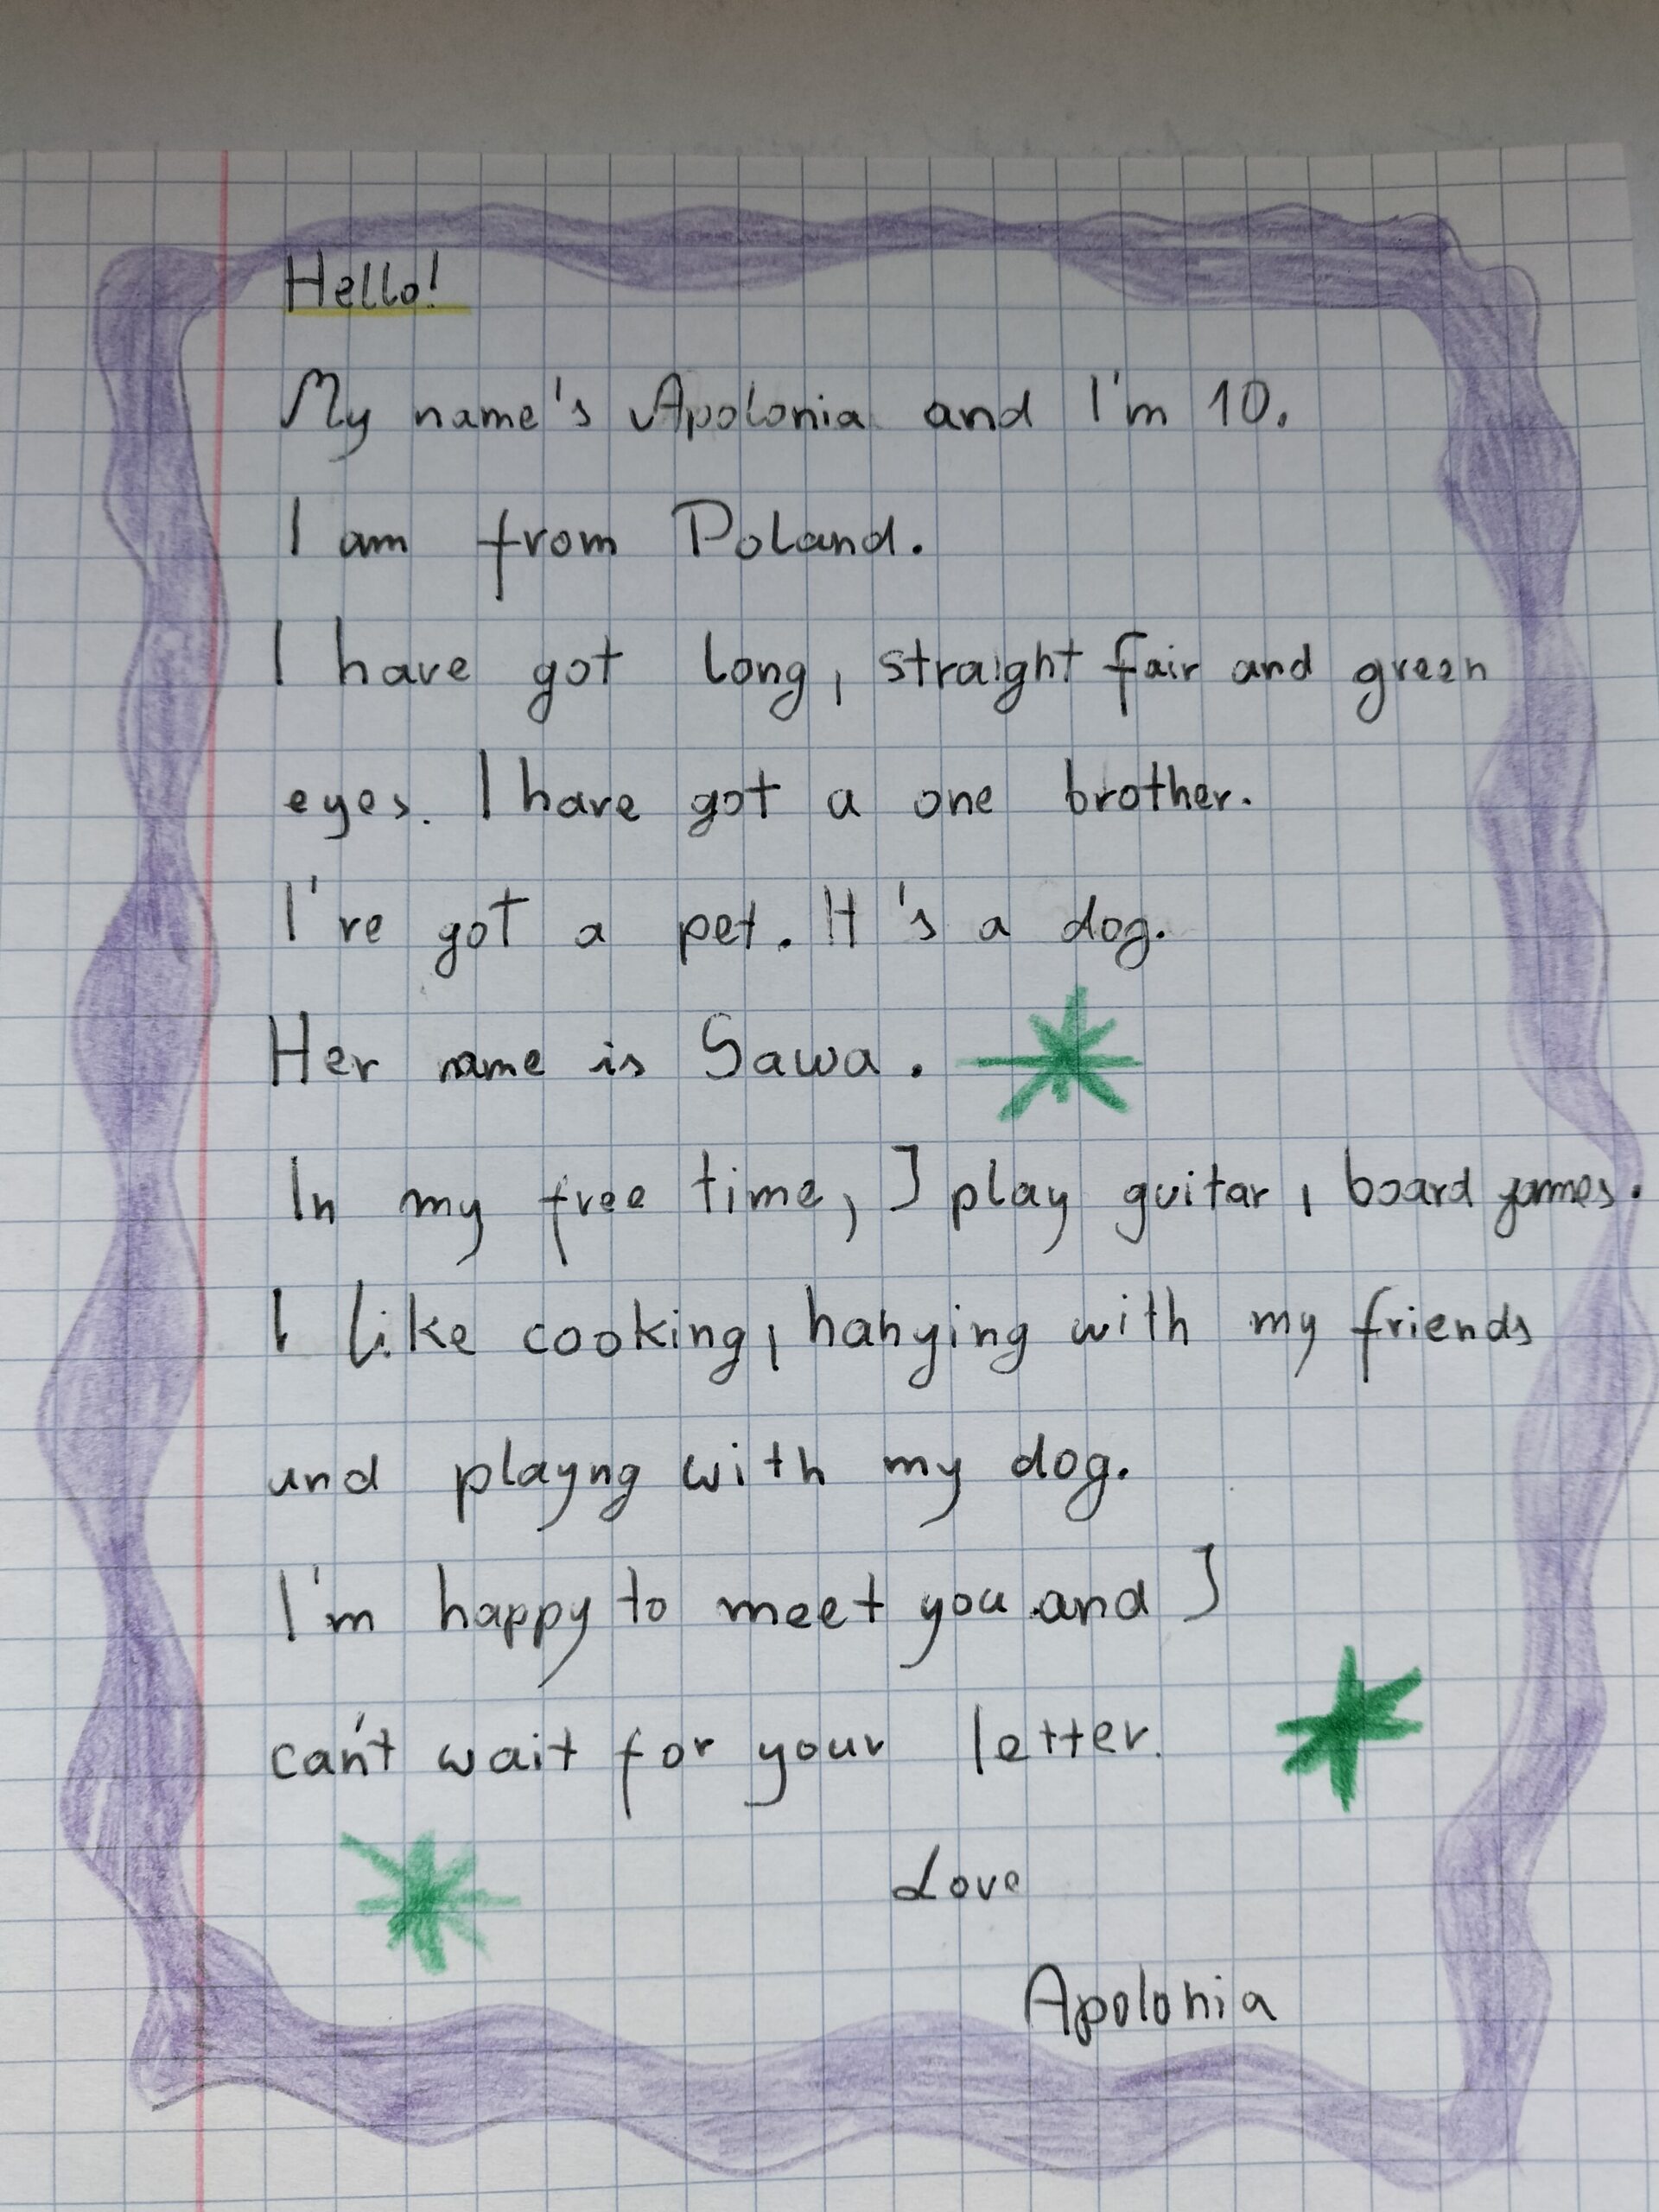 Hello!
My name's Apolonia and I'm 10.
I am from Poland.
I have got long, straight fair and green
eyes. I have got a one brother.
I've got a pet. It's a dog.
Her name is Sawa.
In my free time, I play guitar, board games.
I like cooking, hanging with my friends
and playng with my dog.
I'm happy to meet you and I
can't wait for your letter.
Love
Apolonia